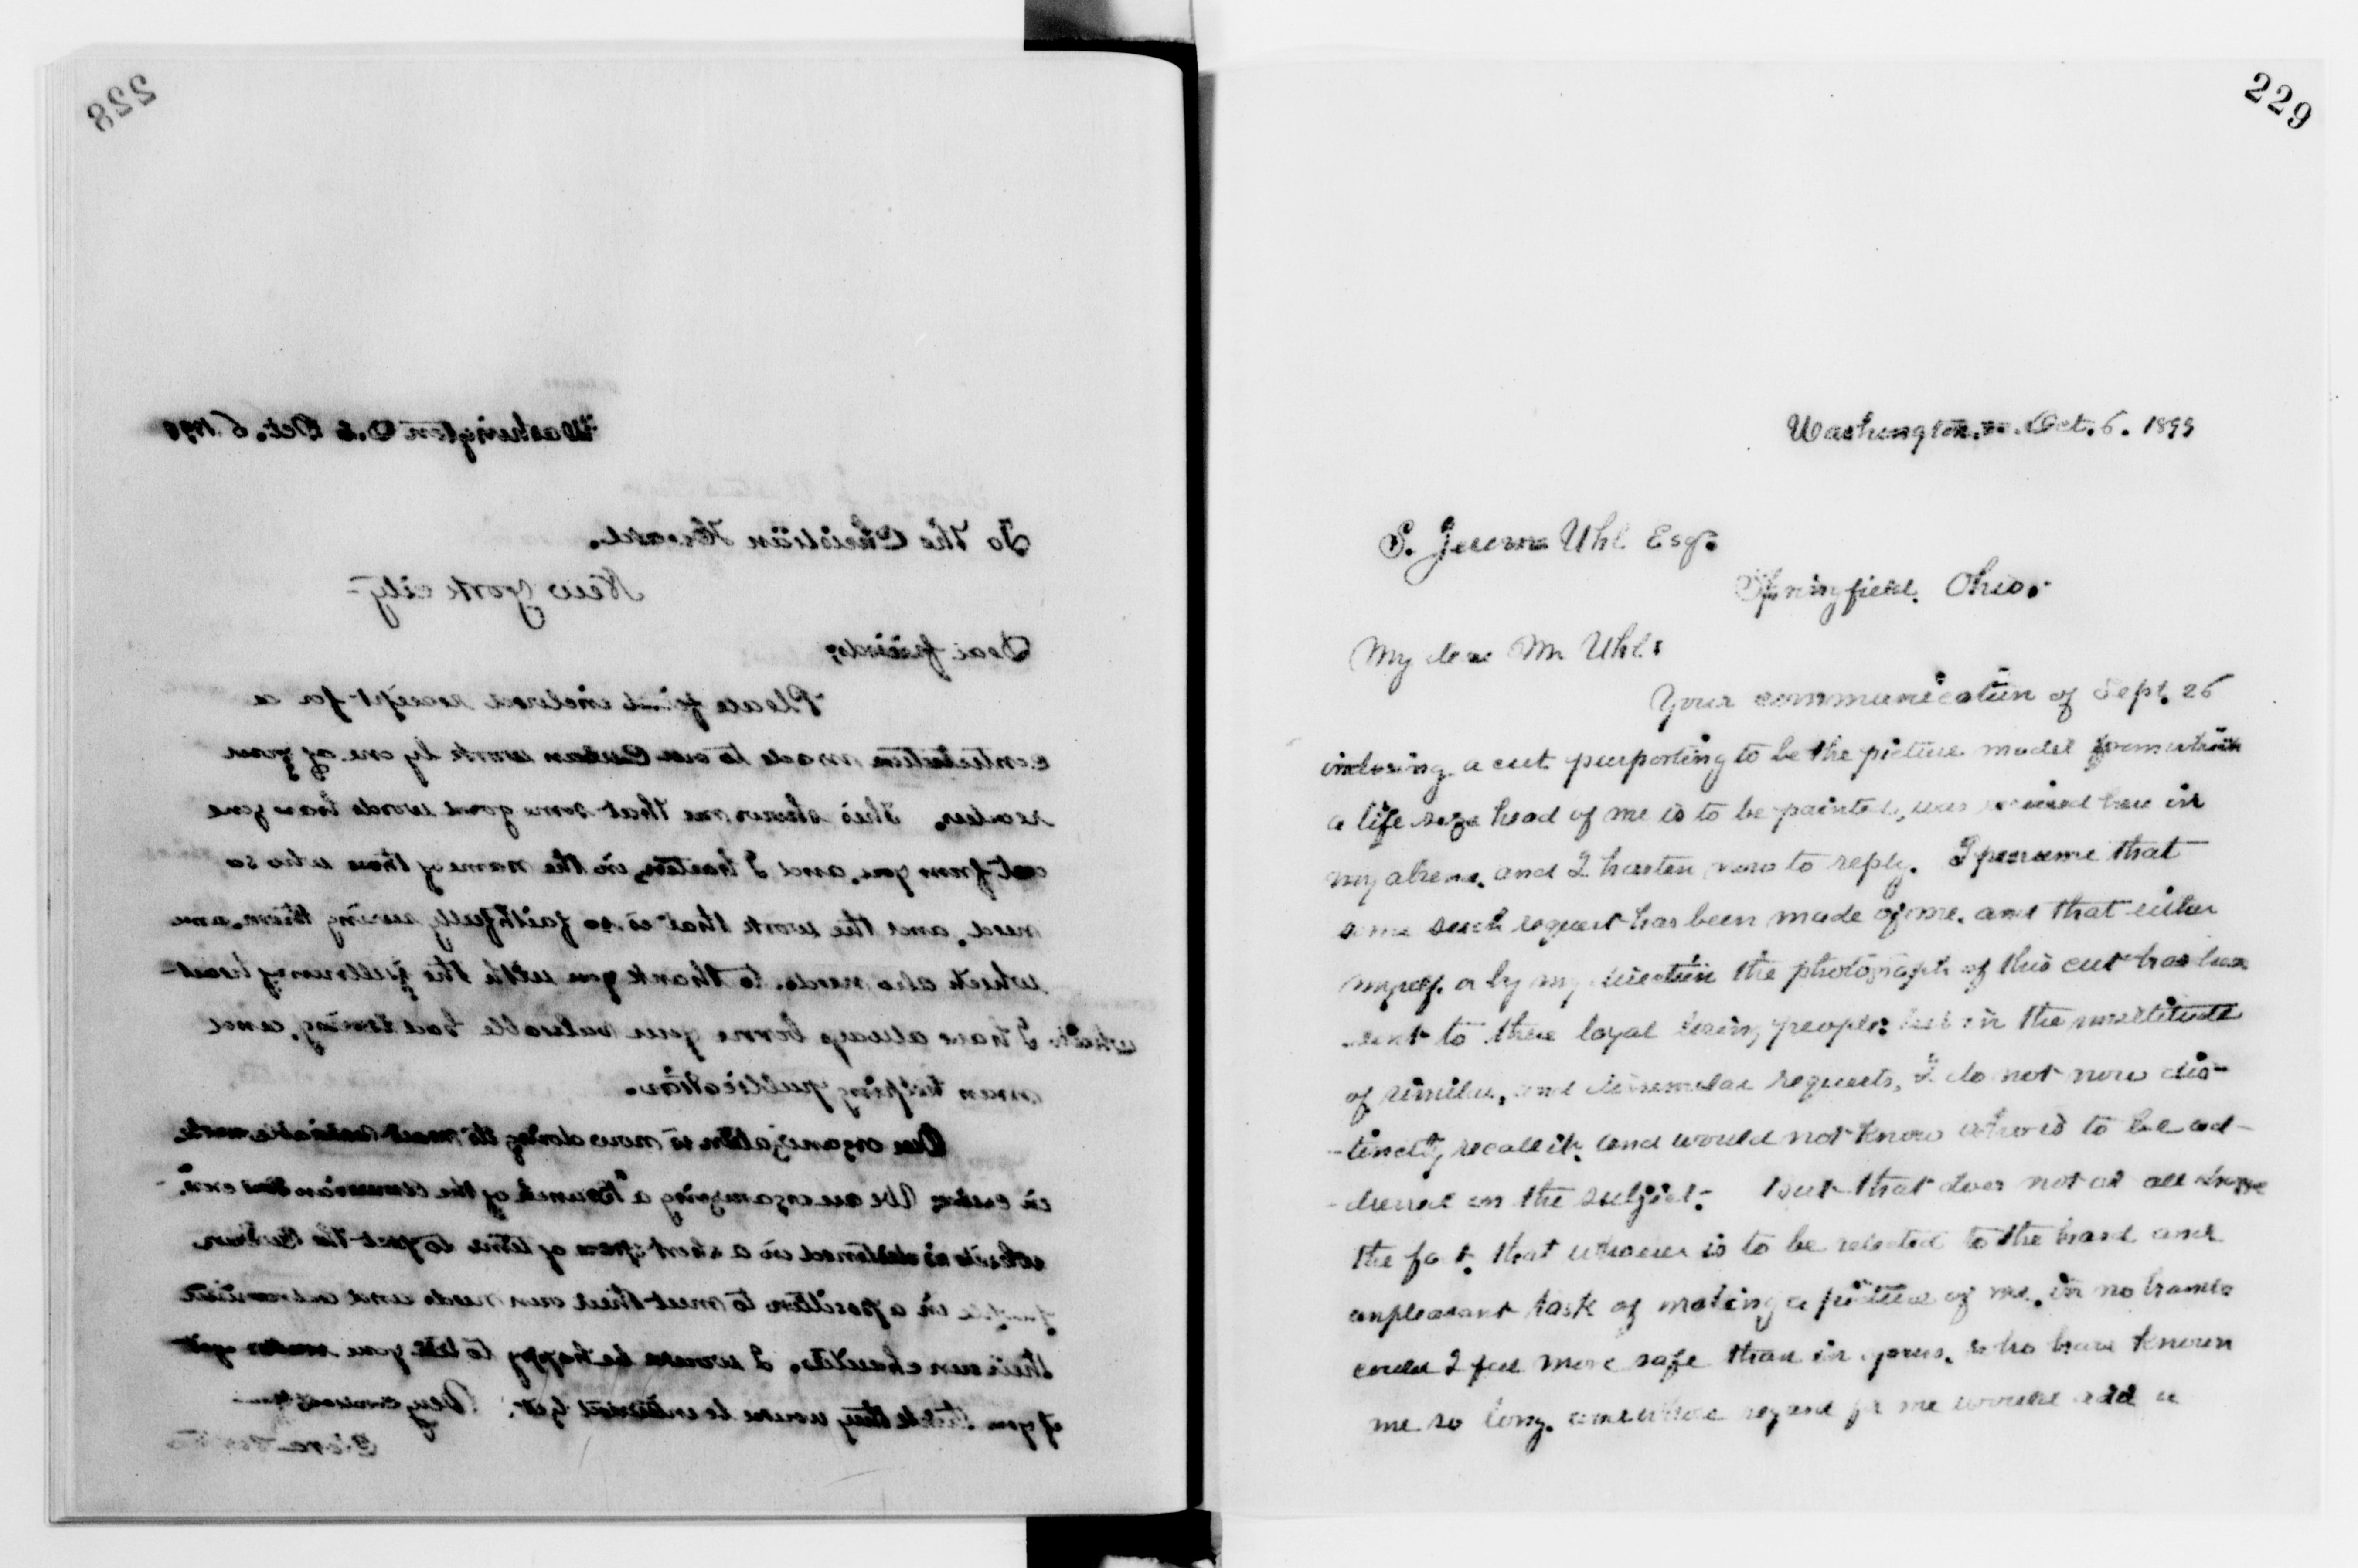 228
Washington D.C. Oct. 6. 1899
To the Christian Herald.
New York City-
Dear friends;
Please find inclosed receipt for a
contribution made to our Cuban work by one of your
readers. This shows me that some good words have gone
out from you, and I hasten, in the name of those who so
need, and the work that is so faithfully
which also needs, to thank you with the full
which I have always borne your valuable
man helping publication.
Our organization is now doing its most work
in Cuba; We are organizing a
which is destined in a short space of time to put the Cuban
people in a position to meet their own needs and administer
their own charities. I would be happy to tell you
if you think they would be
Clara Barton
229
Washington, Oct. 6. 1899
S. Jerome Uhl Esq.
Springfield, Ohio.
My dear Mr. Uhl:
Your communication of Sept. 26
inclosing a cut purporting to be the picture model from which
a life size head of me is to be painted, was received here in
my absence, and I hasten now to reply. I presume that
some such request has been made of me, and that either
myself, or by my direction the photograph of this cut has been
sent to these loyal loving people: but in the multitude
of similar, and dissimilar requests, I do not now dis-
-tinctly recall it, and would not know who is to be ad-
-dressed on the subject- But that does not at all change
the fact, that whoever is to be selected to the hard and
unpleasant task of making a picture of me, in no hands
could I feel more safe than in yours, who have known
me so long, and whose regard for me would add a